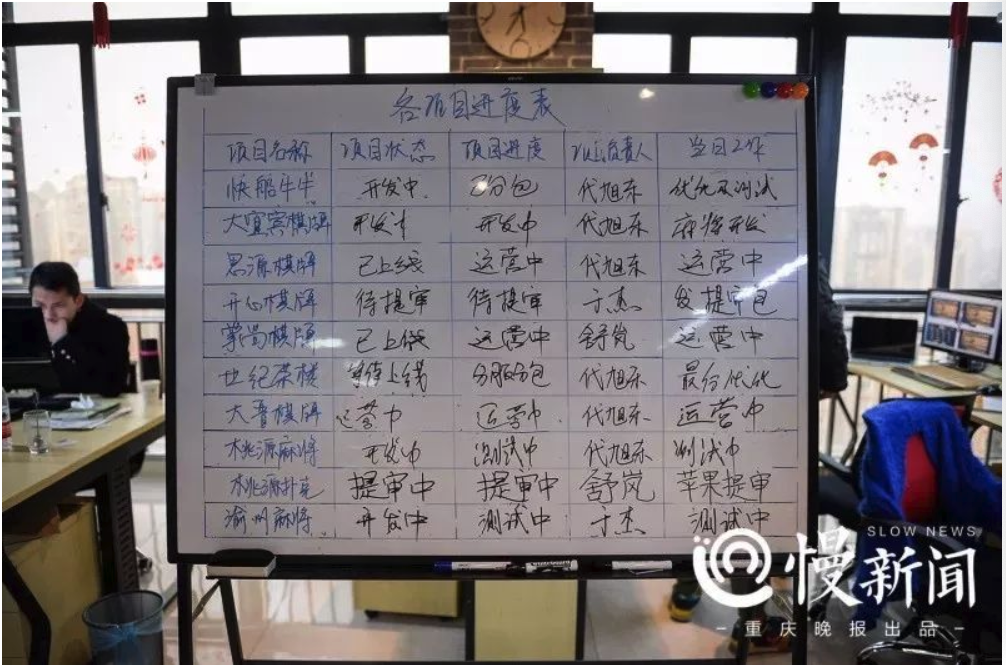 各项目进度表
项目名称 项目状态 项目进度 项目负责人 当日工作
快船牛牛 开发中 已分包 代旭东 优化及测试
大宜宾棋牌 开发中 开发中 代旭东 麻将开发
思源棋牌 已上线 运营中 代旭东 运营中
开心棋牌 待提审 待提审 于杰 发提审包
棋牌 已上线 运营中 舒岚 运营中
世纪茶楼 等待上线 分服分包 代旭东 最后优化
大晋棋牌 运营中 运营中 代旭东 运营中
桃源麻将 开发中 测试中 代旭东 测试中
桃源扑克 提审中 提审中 舒岚 苹果提审
渝州麻将 开发中 测试中 于杰 测试中
SLOW NEWS
慢新闻
重庆晚报出品